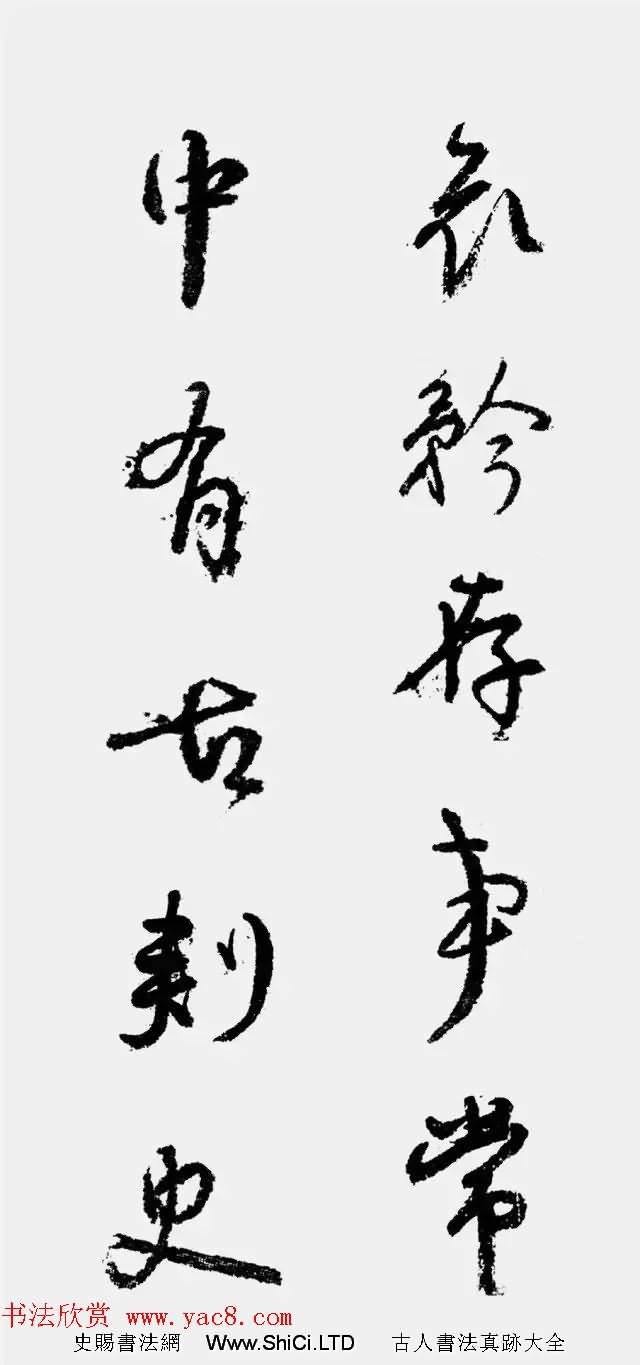 哀矜存事常
中有古刺史
书法欣赏 www.yac8.com
史賜書法網 Www.ShiCi.LTD 古人書法真跡大全